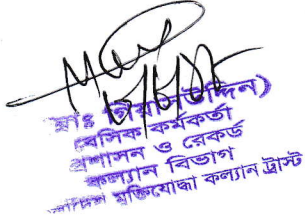 মোঃ গিয়াসউদ্দিন)
বেসিক কর্মকর্তা
প্রশাসন ও রেকর্ড
কল্যান বিভাগ
মুক্তিযোদ্ধা কল্যান ট্রাস্ট